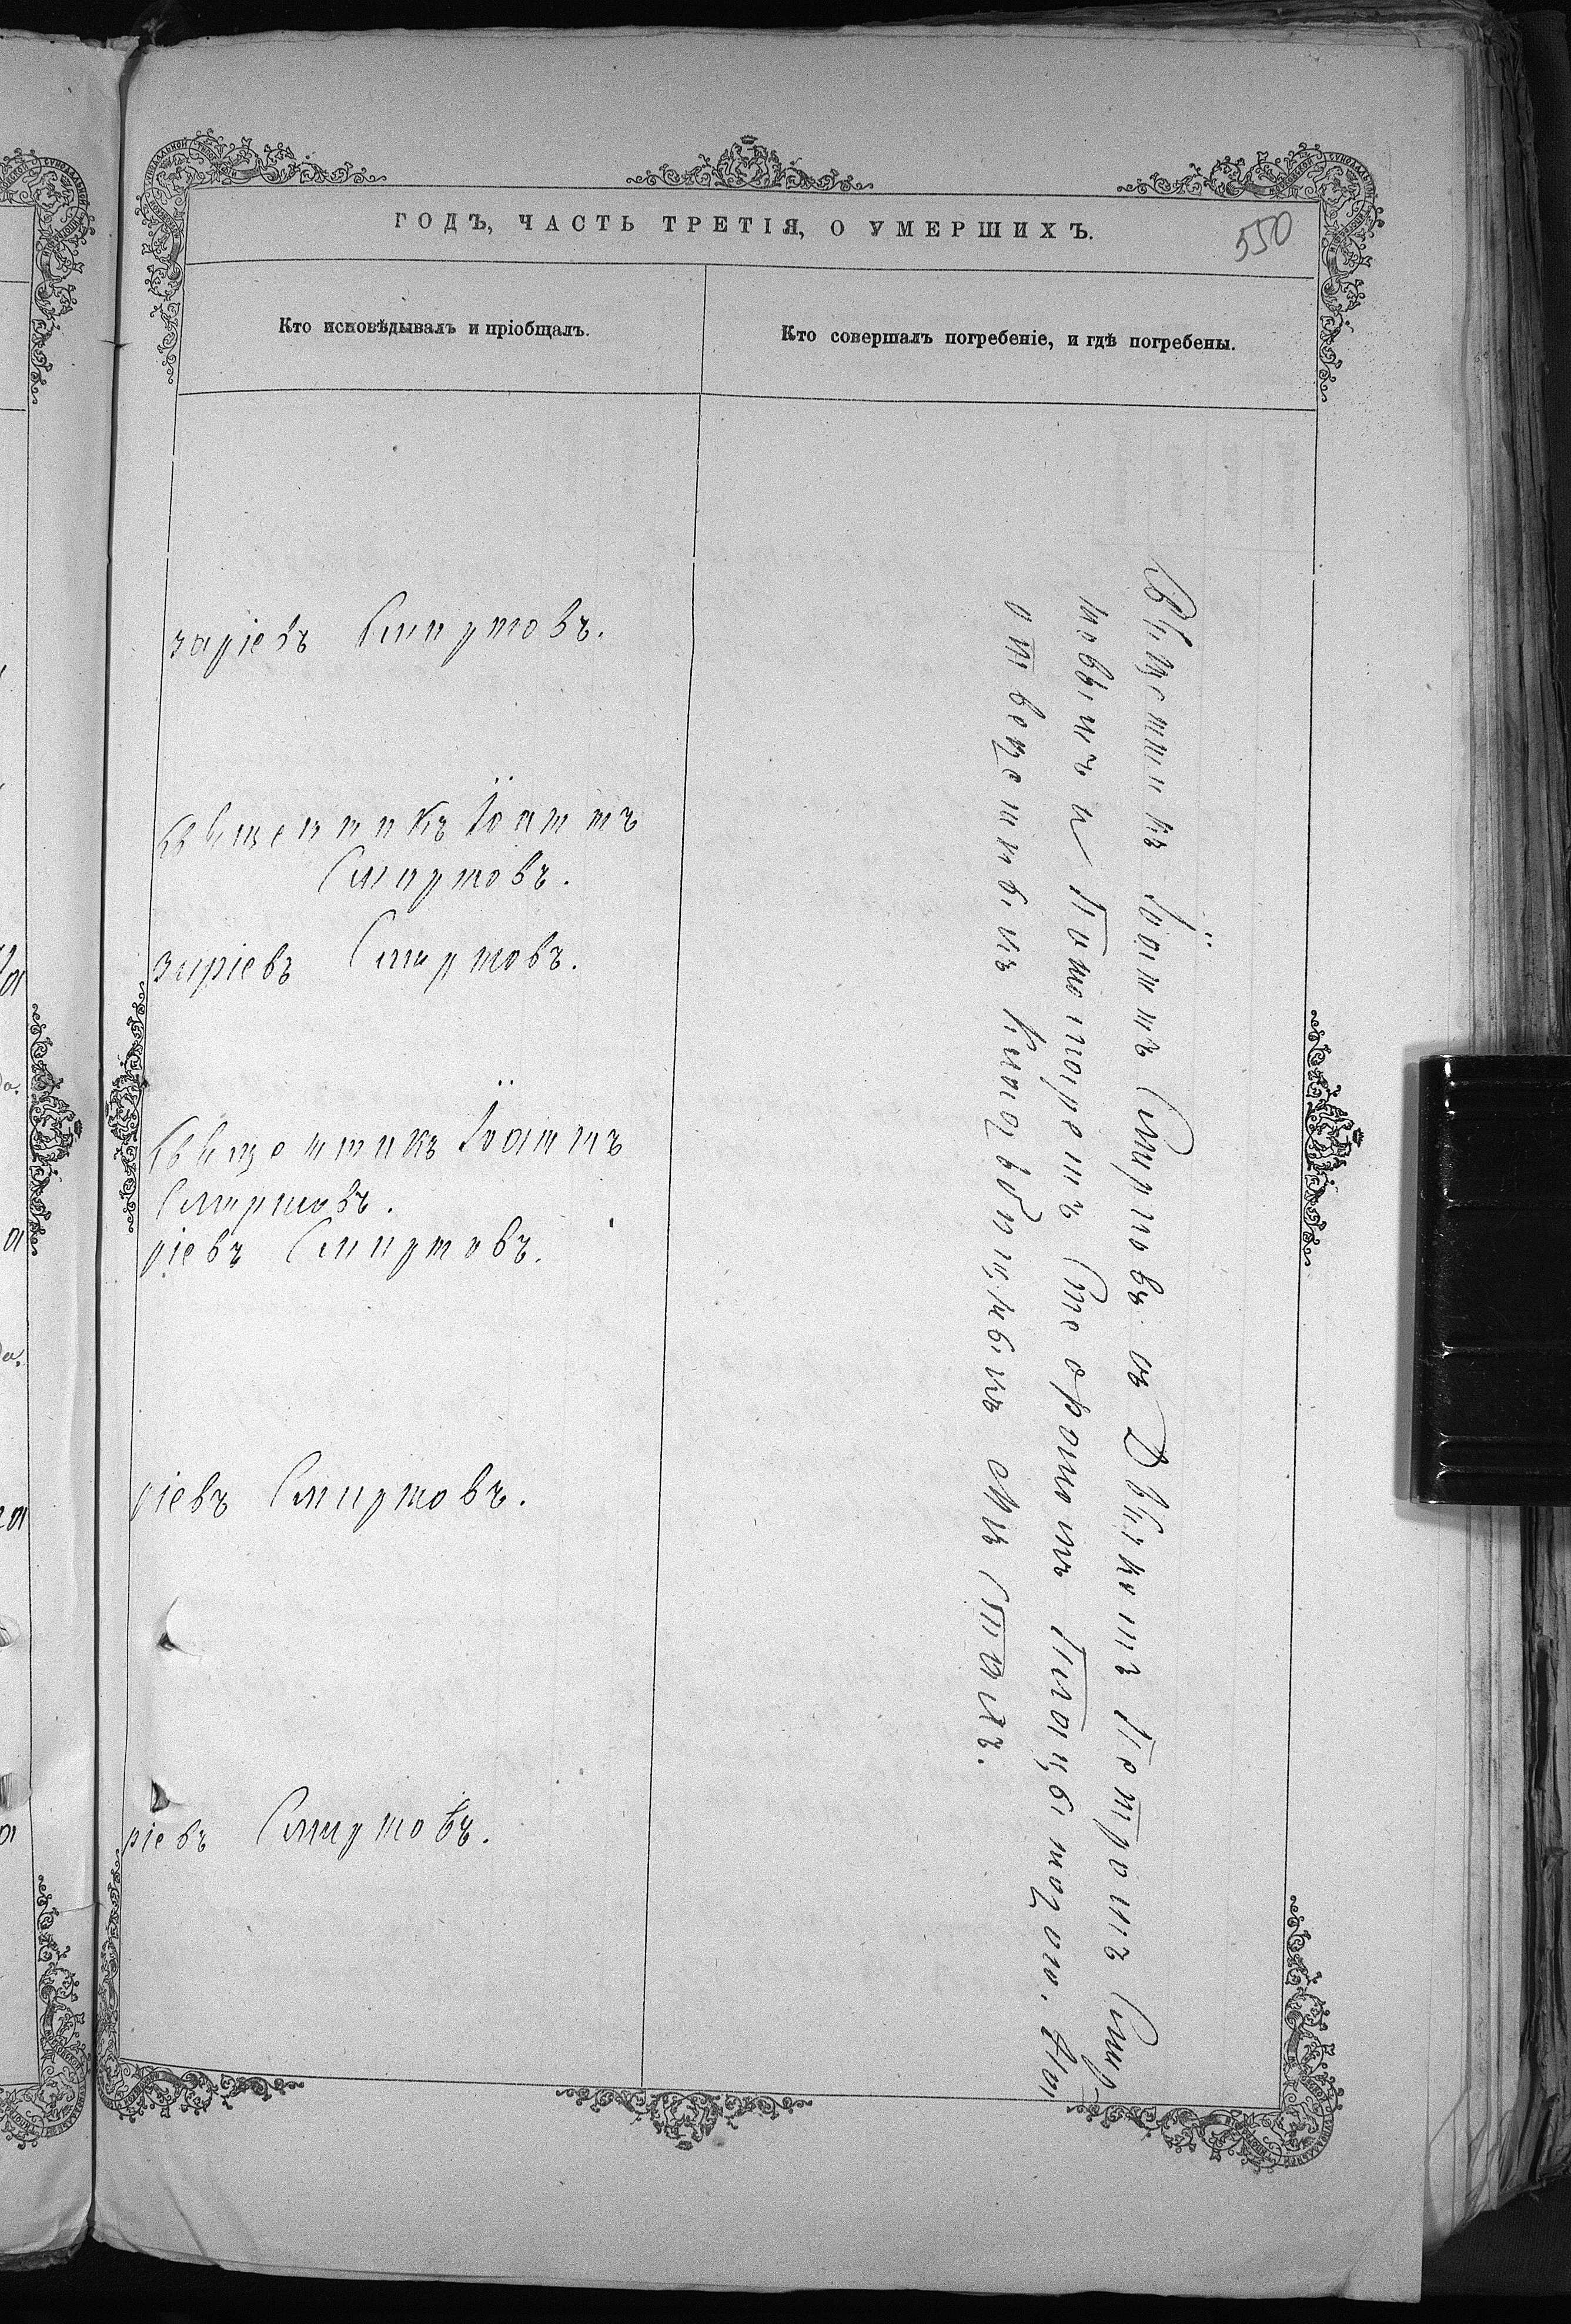 ГОДЪ, ЧАСТЬ ТРЕТІЯ, О УМЕРШИХЪ.
550
Кто исповѣдывалъ и пріобщалъ.
Кто совершалъ погребеніе, и гдѣ погребены.
заріевъ Смирновъ.
Священникъ Іоаннъ
Смирновъ.
заріевъ Смирновъ.
Священникъ Іоаннъ
Смирновъ.
ріевъ Смирновъ.
ріевъ Смирновъ.
ріевъ Смирновъ.
Священникъ Іоаннъ Смирновъ съ Дьякомъ Петромъ Смир-
новымъ и Пономаремъ Николаемъ На
отведенномъ Кладбищѣ